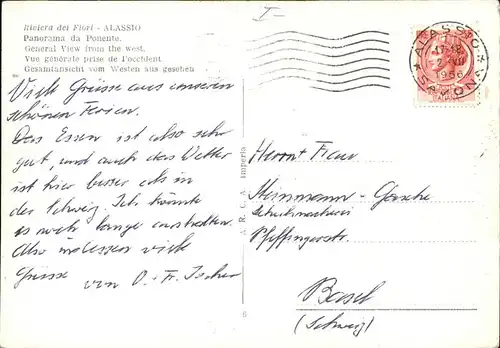 I-
Riviera dei Fiori - ALASSIO
Panorama da Ponente.
General View from the west.
Vue générale prise de l'occident.
Gesamtansicht vom Westen aus gesehen
Viele Grüsse aus unseren
schönen Ferien.
Das Essen ist also sehr
gut, und auch das Wetter
ist hier besser als in
der Schweiz. Ich könnte
es noch lange aushalten.
Also indessen viele
Grüsse
von O. + Fr. Tscher
A. R. C. A. Imperia
6
ALASSIO
17-18
2 VIII
1956
SAVONA
Herrn + Frau
Steinmann - Gasche
Schreibmaschinen
Pfeffingerstr.
Basel
(Schweiz)